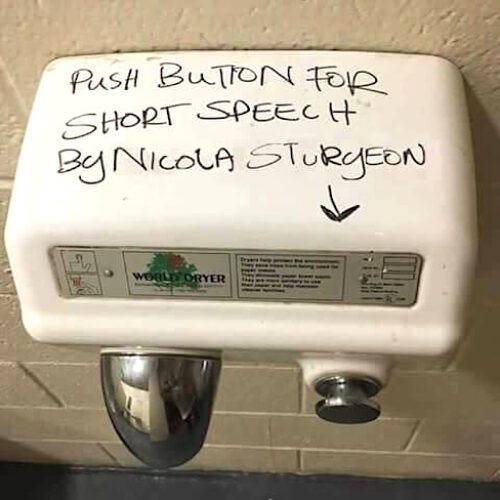 PUSH BUTTON FOR
SHORT SPEECH
By NICOLA STURGEON
WORLD DRYER
Dryers help protect the environment.
They save trees from being used for
paper towels.
They eliminate paper towel waste.
They are more sanitary to use
than paper and help maintain
cleaner facilities.